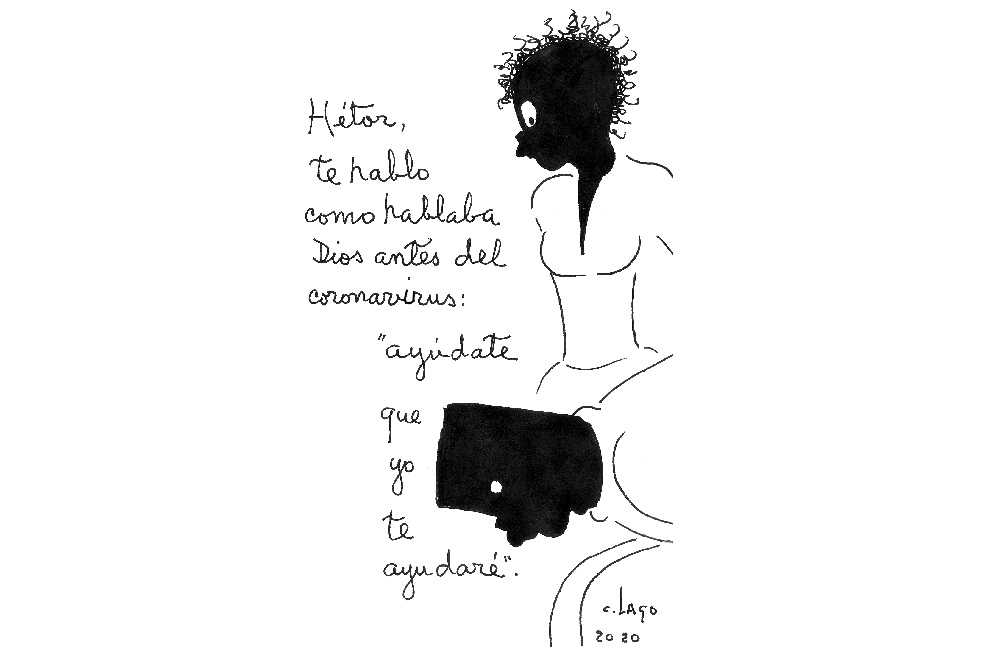 Hétor,
te hablo
como hablaba
Dios antes del
coronavirus:
"ayúdate
que
yo
te
ayudaré".
c. Lago
2020